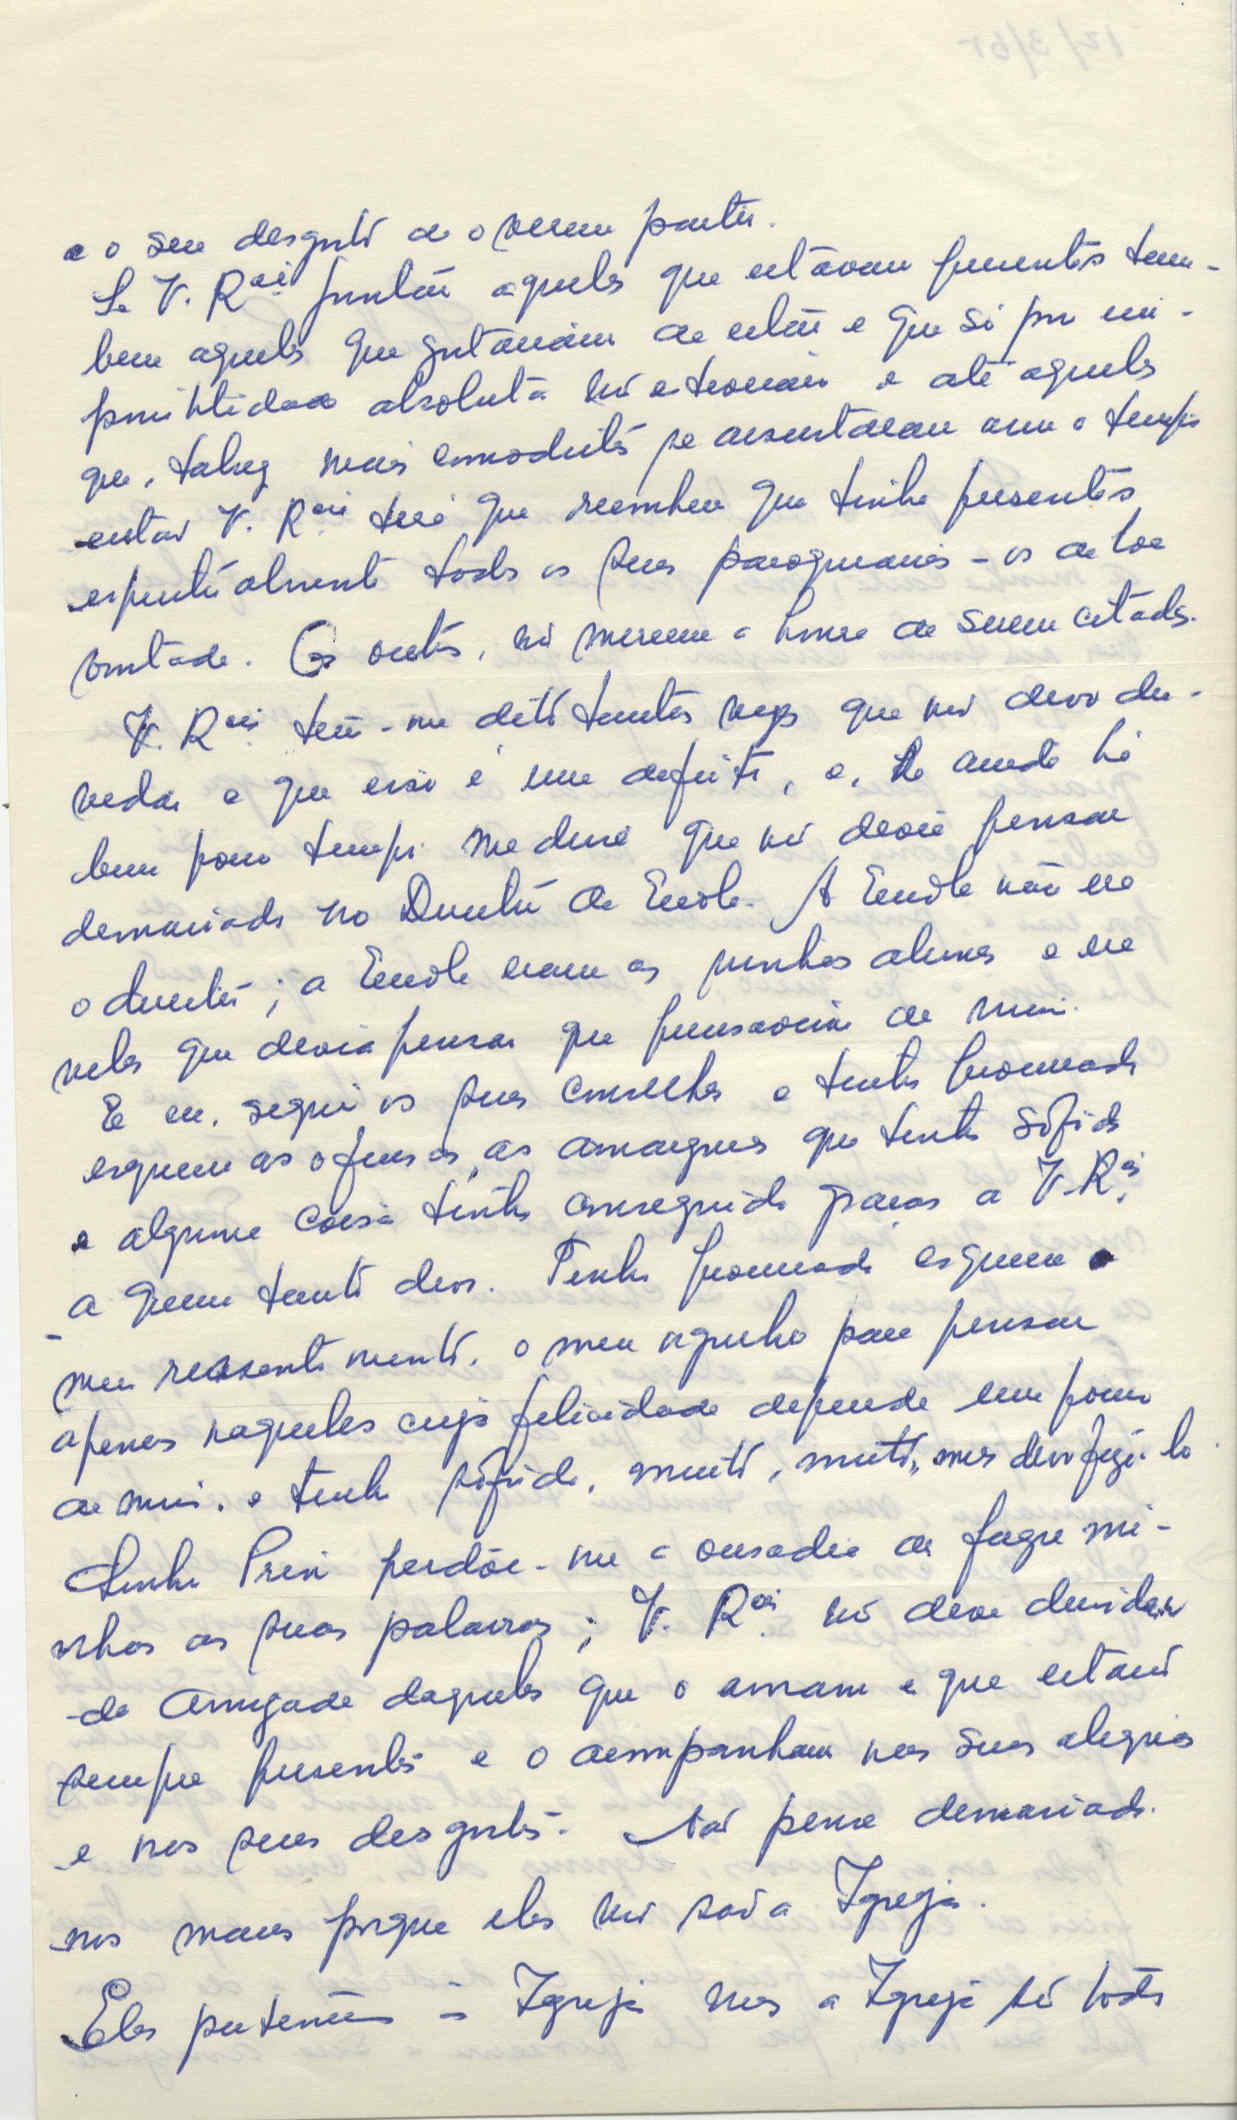 e o seu desgosto de o verem partir.
Se V. Rcia. juntar àqueles que estavam presentes tam-
bém aqueles que gostariam de estar e que só por im-
possibilidade absoluta não estiveram e até aqueles
que, talvez mais comodistas se assustaram com o tempo
então V. Rcia terá que reconhecer que tinha presentes
espiritualmente todos os seus paroquianos - os de boa
vontade. Os outros, não merecem a honra de serem citados.
V. Rcia. tem-me dito tantas vezes que não devo du-
vidar e que isso é um defeito, e, ainda há
bem pouco tempo me disse que não devia pensar
demasiado no Director da Escola. A Escola não era
o director; a Escola eram as minhas alunas e era
nelas que devia pensar que precisavam de mim.
E eu, segui os seus conselhos e tenho procurado
esquecer as ofensas, as amarguras que tenho sofrido
e alguma coisa tenho conseguido graças a V. Rcia.
a quem tanto devo. Tenho procurado esquecer o
meu ressentimento, o meu orgulho para pensar
apenas naqueles cuja felicidade depende um pouco
de mim, e tenho sofrido, muito, muito, mas devo fazê-lo.
Senhor Prior perdoe-me a ousadia de fazer mi-
nhas as suas palavras; V. Rcia. não deve duvidar
da amizade daqueles que o amam e que estão
sempre presentes e o acompanham nas suas alegrias
e nos seus desgostos. Não pense demasiado
nos maus porque eles não são a Igreja.
Eles pertencem à Igreja mas a Igreja são todos